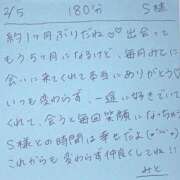 2/5 180分 S様
約1ヶ月ぶりだね♡♡出会って
もう5ヶ月になるけど、毎月みとに
会いに来てくれて本当にありがとう♡
いつも変わらず、一途に好きでいて
くれて、会うと毎回笑顔になっちゃう
S様との時間は幸せだよ(o´∀`o)
これからも変わらず仲良くしてね!!
みと